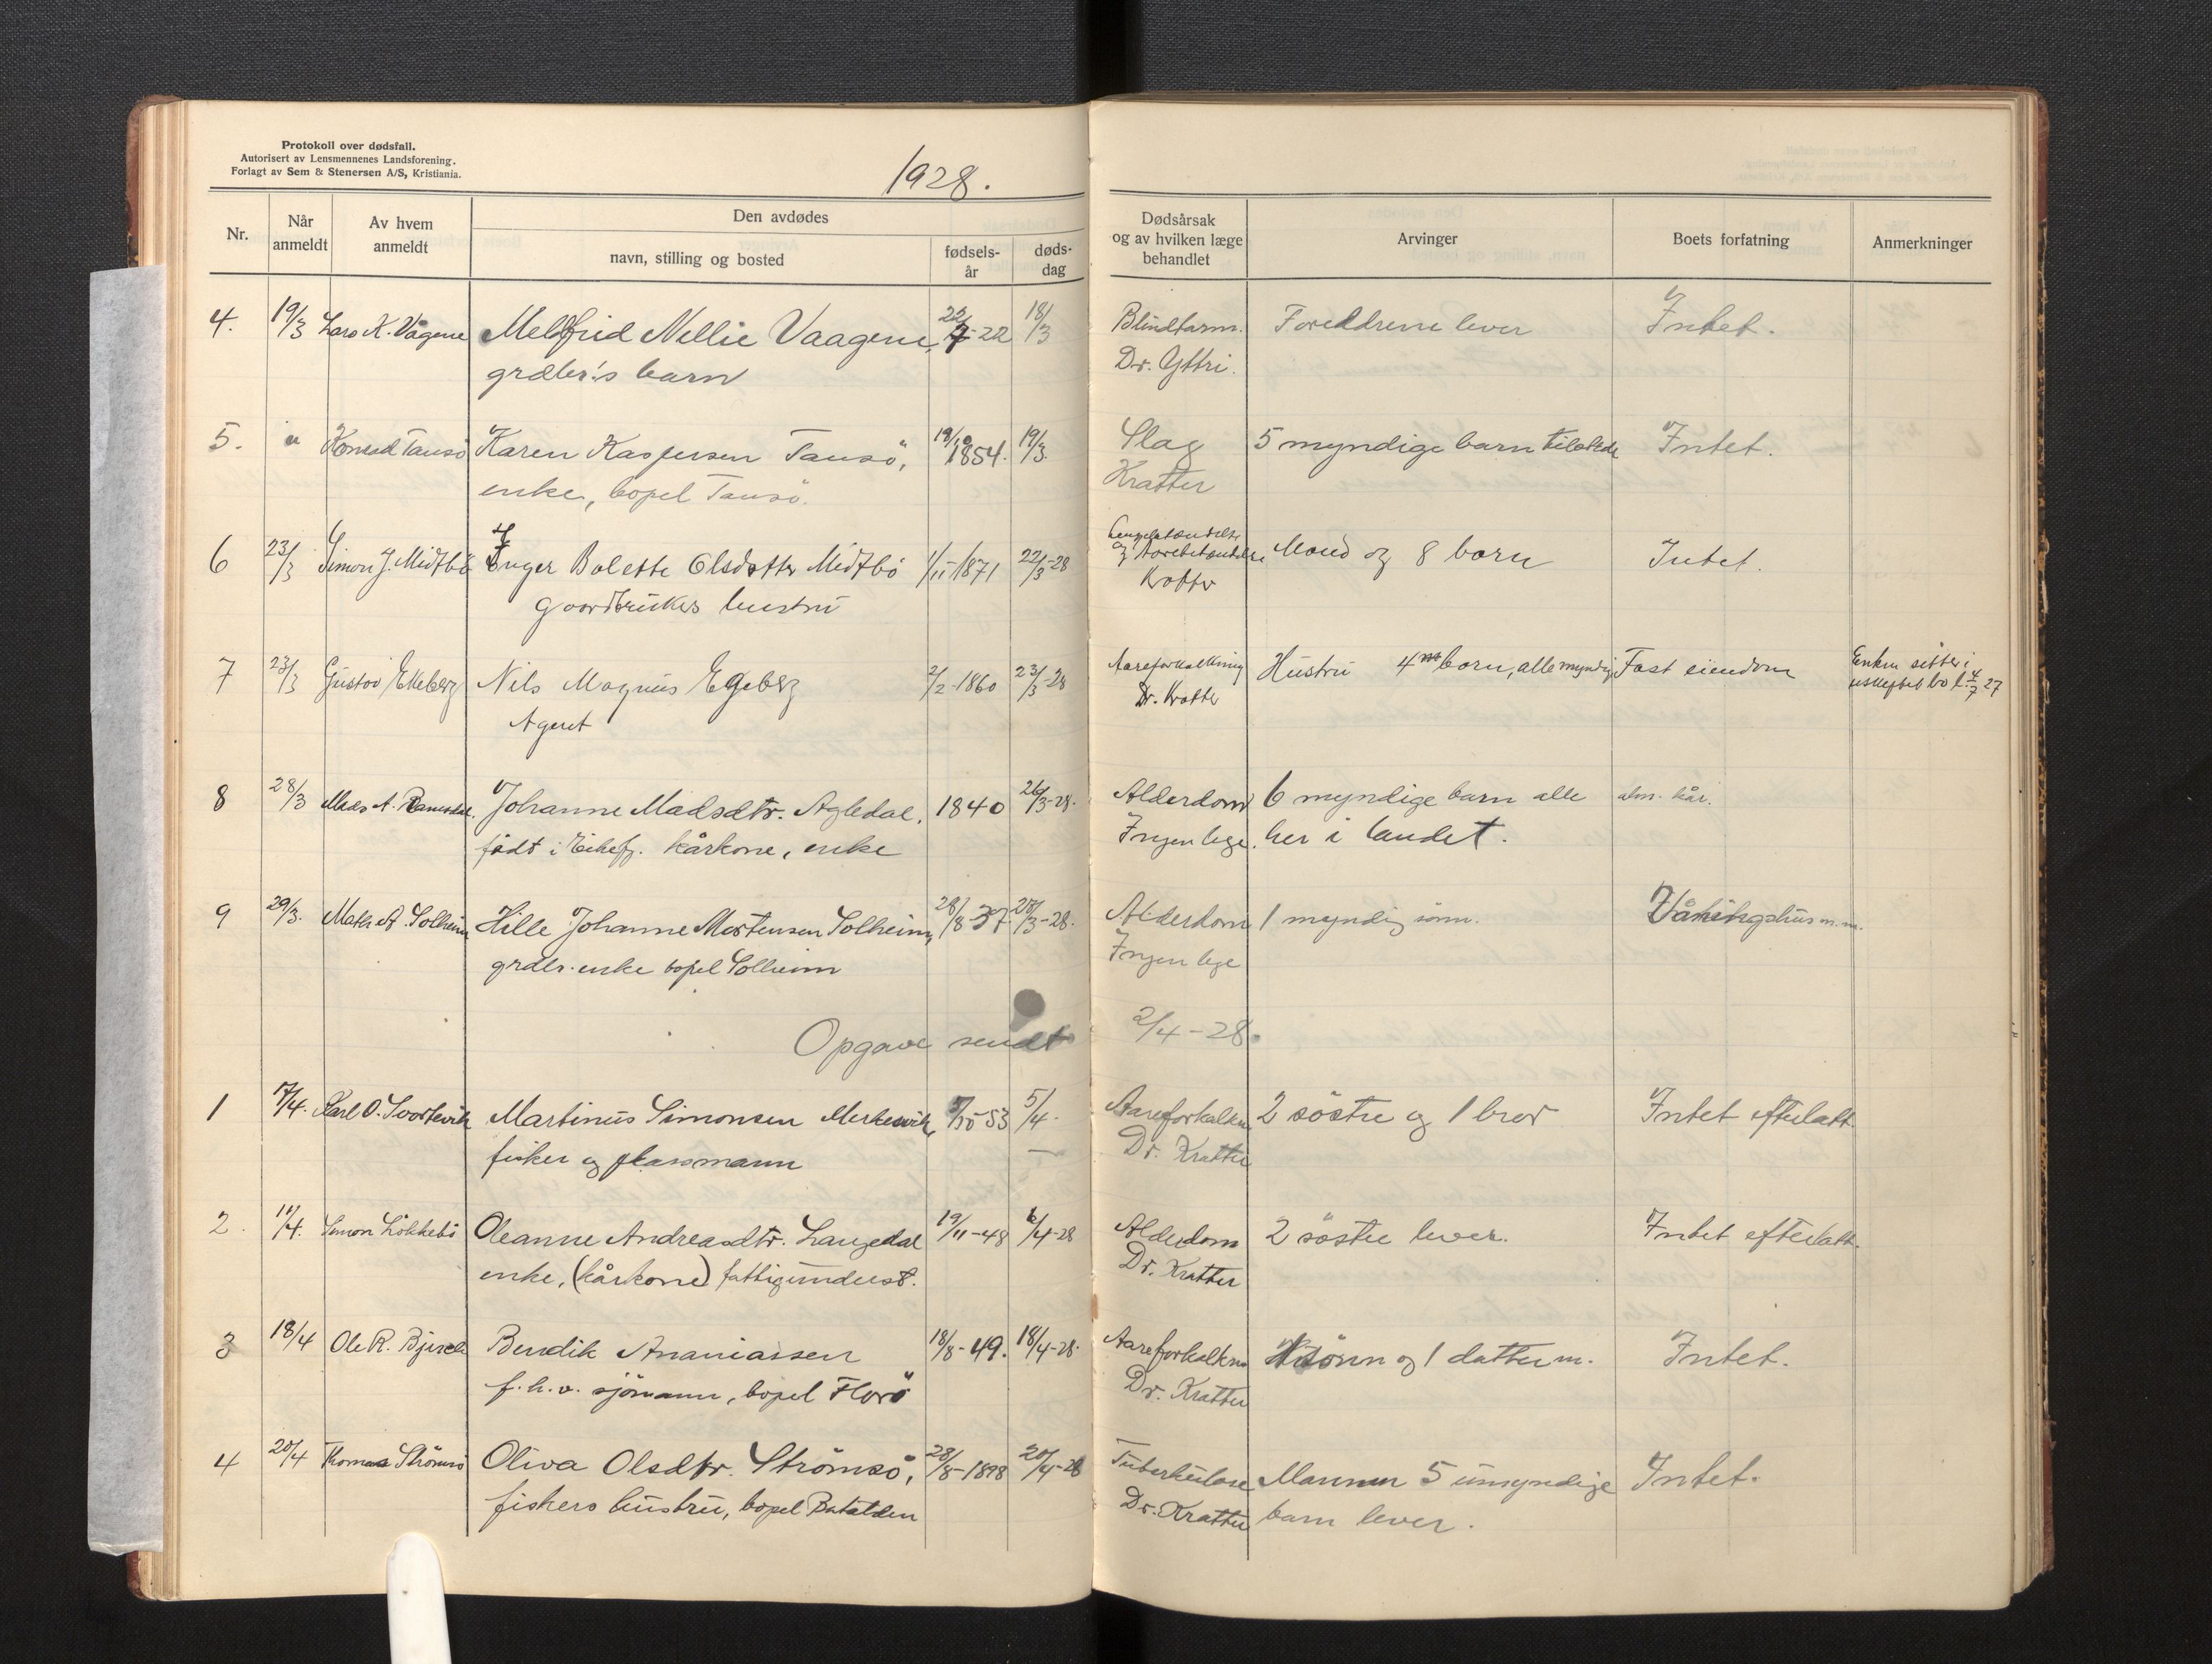 Protokoll over dødsfall.
Autorisert av Lensmennenes Landsforening.
Forlagt av Sem & Stenersen A/S, Kristiania.
1928.
Nr.
Når anmeldt
Av hvem anmeldt
Den avdødes
navn, stilling og bosted
fødsels-år
døds-dag
Dødsårsak og av hvilken læge behandlet
Arvinger
Boets forfatning
Anmerkninger
4. 19/3 Lars K. Vågene Melfrid Nellie Vaagene, 22/7-22 18/3 Blindtarm. Foreldrene lever Intet.
grdbr's barn Dr. Yttri.
5. " Konrad Tansö Karen Kaspersen Tansö, 19/10 1854. 19/3. Slag 5 myndige barn tilstede Intet.
enke, bopel Tansö. Kratter
6 23/3 Simon J. Midtbö Inger Bolette Olsdotter Midtbö 1/11-1871 22/3-28 Mand og 8 born Intet.
goordbrukers hustru Kratter
7 23/3 Gustav Ekeberg Nils Magnus Egeberg 2/2-1860 23/3-28 Aareforkalkning Hustru 4 born, alle myndig Fast eiendom Enken sitter i
Agent Dr. Kratter uskiftet bo l. 4/7 27
8 28/3 Mads A. Ramsdal. Johanne Madsdtr. Agledal, 1840 26/3-28. Alderdom 6 myndige barn alle alm. kår.
födt i Eikefj. kårkone, enke Ingen lege. her i landet.
9 29/3. Math A. Solheim Hille Johanne Mortensen Solheim, 28/8 37. 28/3-28. Alderdom 1 myndig sönn. Våningshus m.m.
grdbr. enke bopel Solheim Ingen lege
Opgave sendt 2/4-28.
1 17/4. Karl O. Svortevik Martinus Simonsen Merkesvik, 53 5/4. Aareforkalkn 2 söstre og 1 bror Intet efterlatt.
fisker og plassmann Dr. Kratter
2. 11/4. Simon Lökkebö Oleanne Andreasdtr. Langedal 19/11-48 6/4-28 Alderdom 2 söstre lever. Intet efterlatt.
enke, (kårkone) fattigunderst. Dr. Kratter
3 18/4 Ole R. Bendik Ananiassen 18/8-49. 18/4-28. Aareforkalkn sönn og 1 datter m. Intet.
f. h. v. sjömann, bopel Florö Dr. Kratter
4 20/4 Thomas Strömsö Oliva Olsdtr. Strömsö, 28/8-1898 20/4-28 Tuberkulose Mannen 5 umyndige Intet.
fiskers hustru, bopel Batalden Dr. Kratter barn lever.